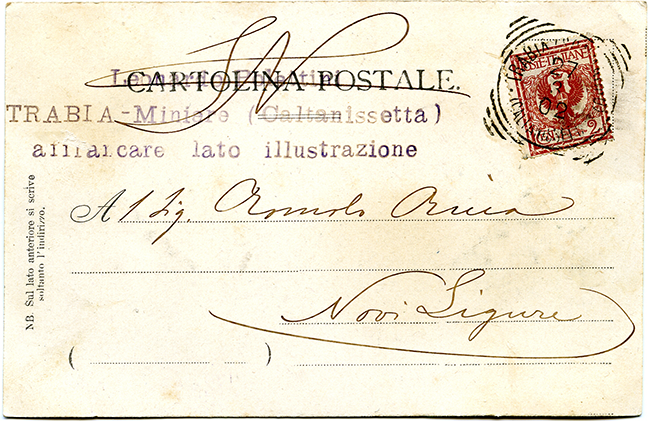 CARTOLINA POSTALE.
TRABIA-Miniere (Caltanissetta)
affrancare lato illustrazione
Al Sig. Romolo
Novi Ligure
NB. Sul lato anteriore si scrive
soltanto l'indirizzo.
POSTE ITALIANE
2
27
7
02